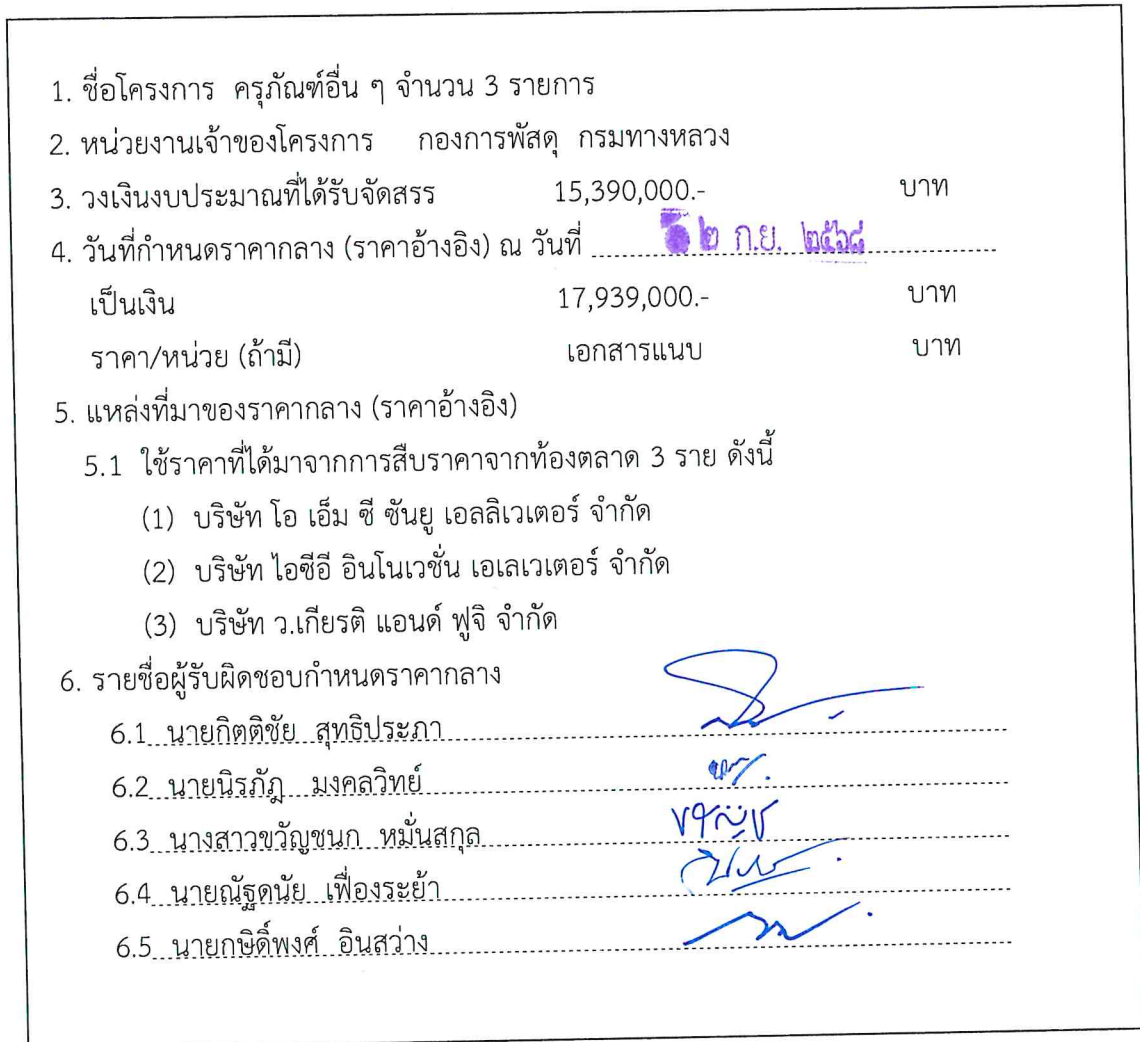 1. ชื่อโครงการ ครุภัณฑ์อื่น ๆ จำนวน 3 รายการ
2. หน่วยงานเจ้าของโครงการ กองการพัสดุ กรมทางหลวง
3. วงเงินงบประมาณที่ได้รับจัดสรร 15,390,000.- บาท
4. วันที่กำหนดราคากลาง (ราคาอ้างอิง) ณ วันที่ ๒ ก.ย. ๒๕๖๘
เป็นเงิน 17,939,000.- บาท
ราคา/หน่วย (ถ้ามี) เอกสารแนบ บาท
5. แหล่งที่มาของราคากลาง (ราคาอ้างอิง)
5.1 ใช้ราคาที่ได้มาจากการสืบราคาจากท้องตลาด 3 ราย ดังนี้
(1) บริษัท โอ เอ็ม ซี ซันยู เอลลิเวเตอร์ จำกัด
(2) บริษัท ไอซีอี อินโนเวชั่น เอเลเวเตอร์ จำกัด
(3) บริษัท ว.เกียรติ แอนด์ ฟูจิ จำกัด
6. รายชื่อผู้รับผิดชอบกำหนดราคากลาง
6.1 นายกิตติชัย สุทธิประภา
6.2 นายนิรภัฎ มงคลวิทย์
6.3 นางสาวขวัญชนก หมั่นสกุล
6.4 นายณัฐดนัย เฟื่องระย้า
6.5 นายกษิดิ์พงศ์ อินสว่าง